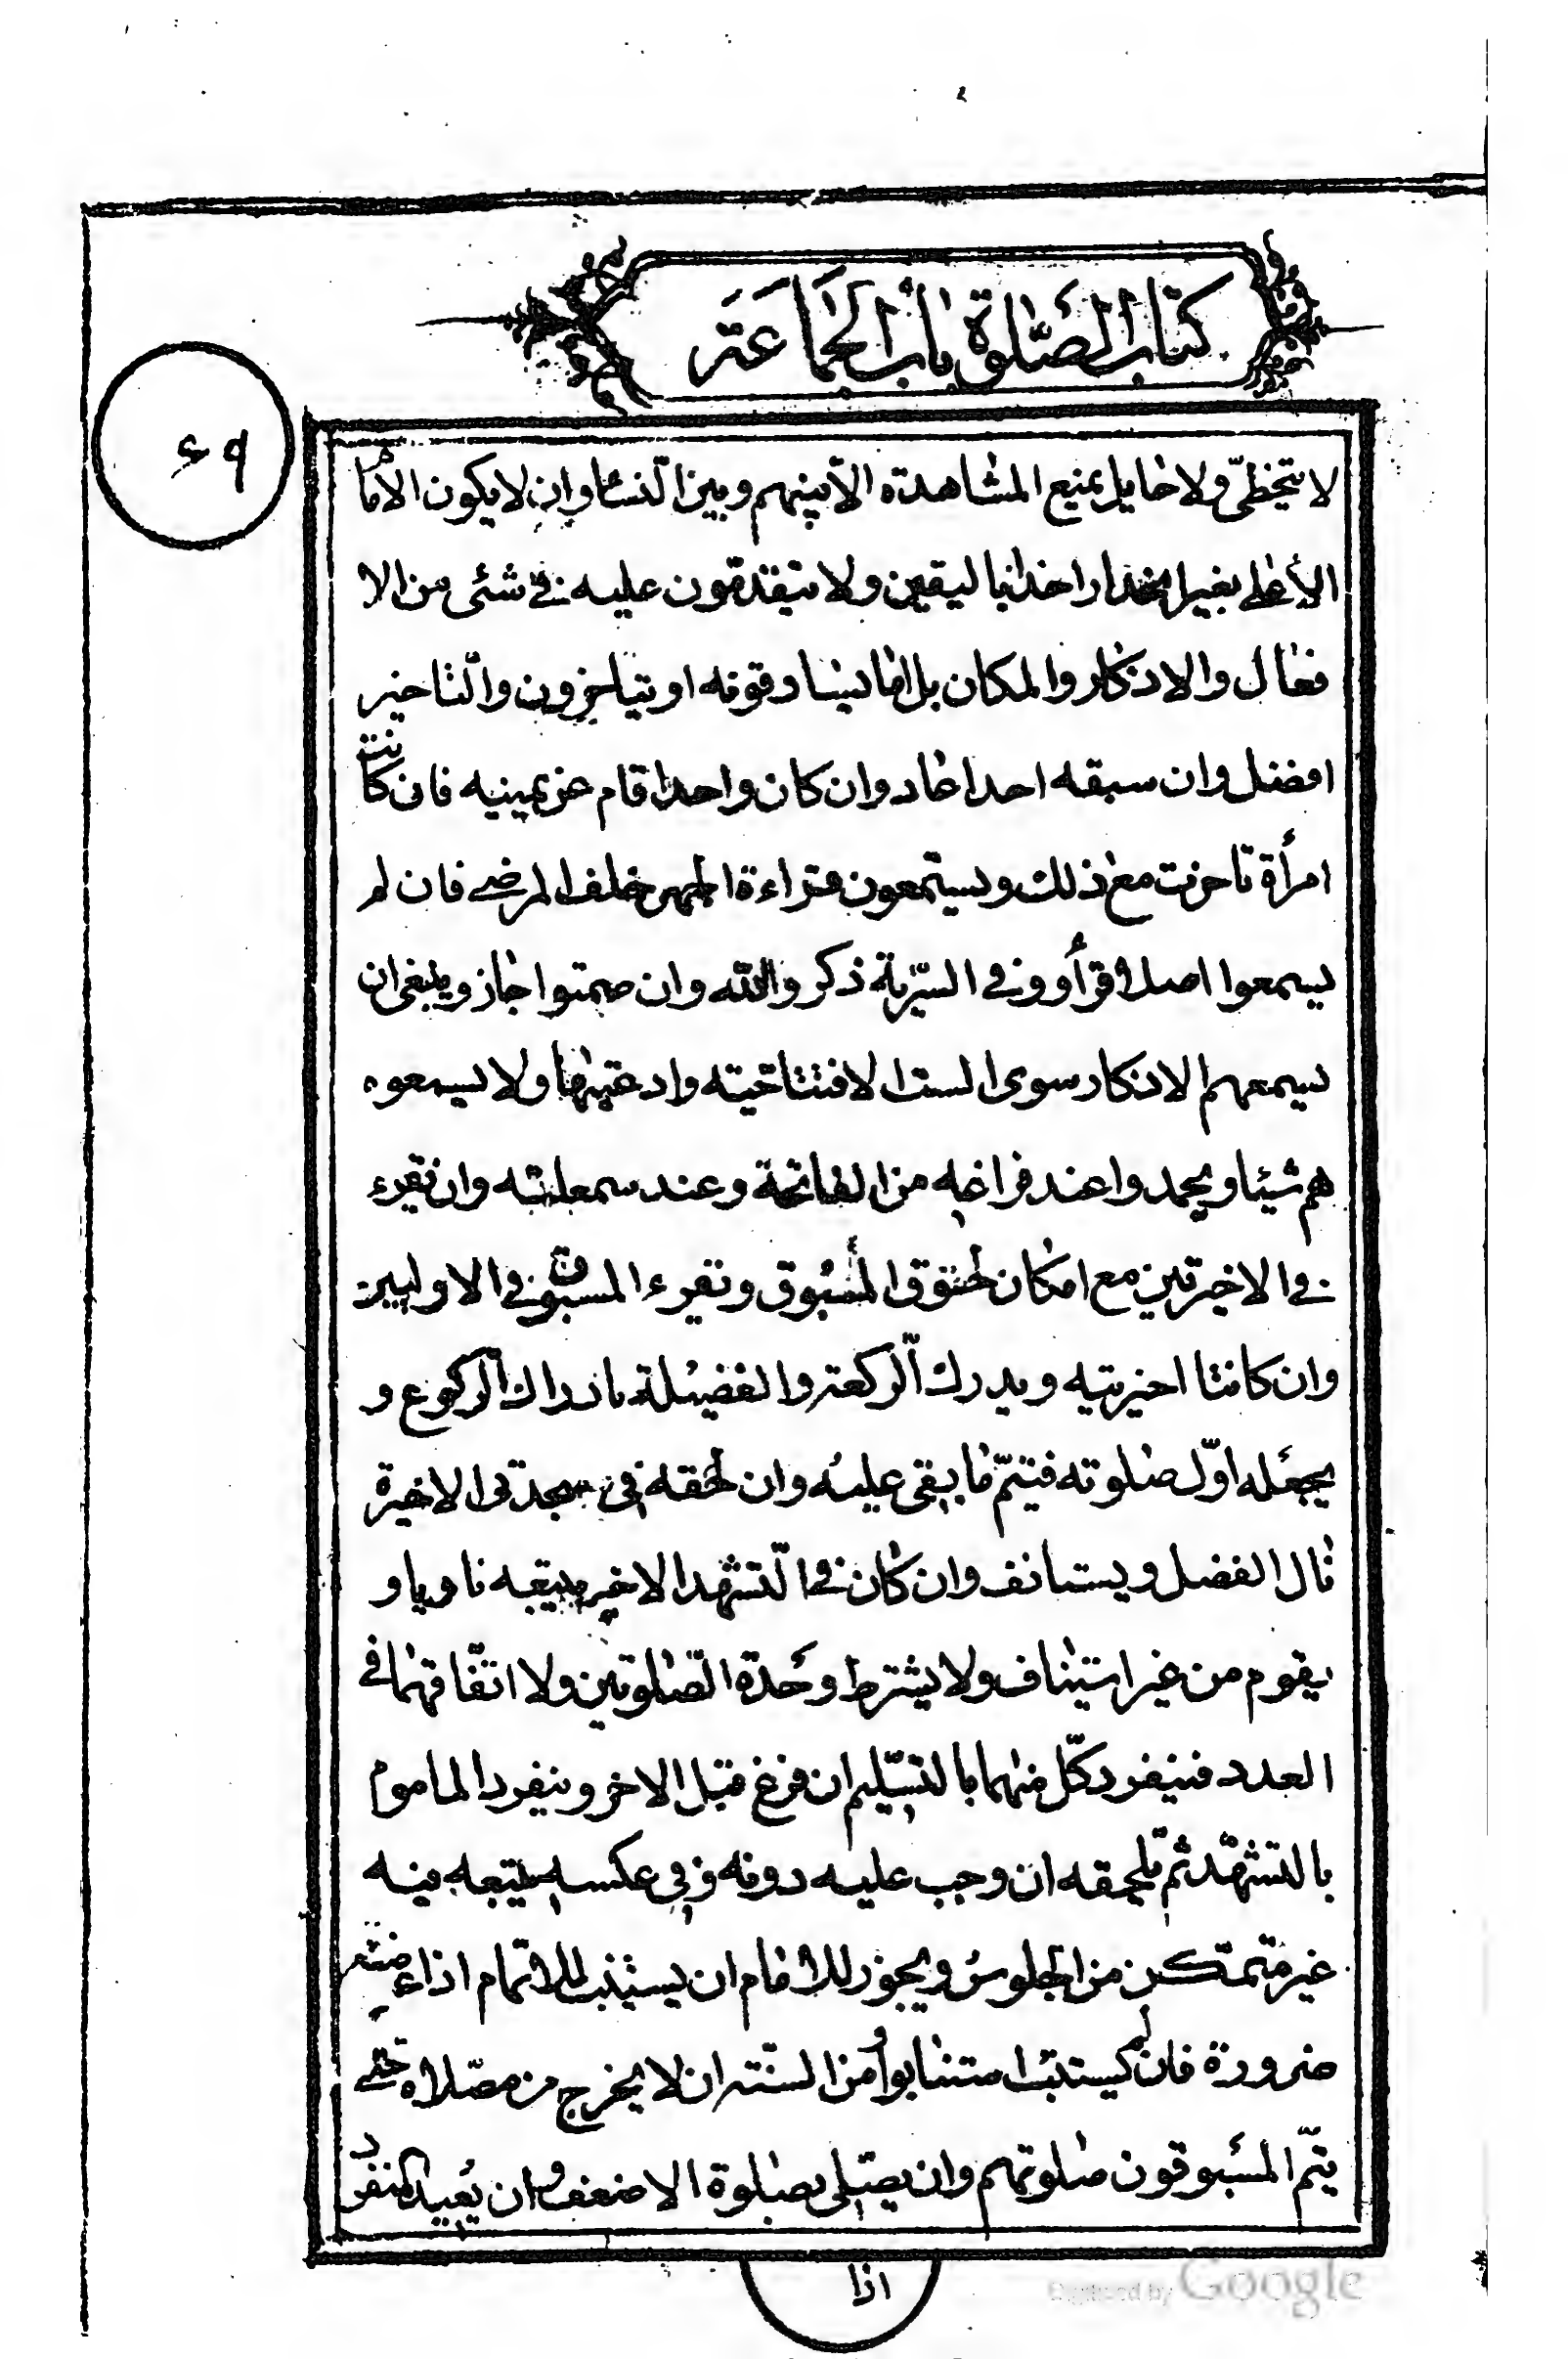 كتاب الصّلوة باب الجماعة
٤٩
لا يتخطّى ولا حايل يمنع المشاهدة الّا بينهم وبين النّساء وان لا يكون الامام
الأعلى بغير انحدار اخذا باليقين ولا يتقدّمون عليه في شئى من الا
فعال والاذكار والمكان بل اما يساوقونه او يتاخرون والتّاخير
افضل وان سبقه احد اعاد وان كان واحدا قام عن يمينه فان كانت
امرأة تاخرت مع ذلك ويستمعون قراءة الجهر خلف المرضى فان لم
يسمعوا اصلا قرأوا وفي السّرّية ذكروا اللّه وان صمتوا جاز وينبغى ان
يسمعهم الاذكار سوى الست الافتتاحيته وادعيتها ولا يسمعوه
هم شيئا ويحمدوا عند فراغه من الفاتحة وعند سمعلته وان يقرء
في الاخيرتين مع امكان لحوق المسبوق ويقرء المسبوق في الاوليين
وان كانتا اخيرتيه ويدرك الرّكعة والفضيلة بادراك الرّكوع و
يجعله اوّل صلوته فيتمّ ما يبقى عليه وان لحقه في سجدتى الاخيرة
نال الفضل ويستانف وان كان في التّشهد الاخير يتبعه ناويا و
يقوم من غير استيناف ولا يشترط وحدة الصّلوتين ولا اتّفاقهما في
العدد فينفرد كلّ منهما بالتّسليم ان فرغ قبل الاخر وينفرد الماموم
بالتشهّد ثمّ يلحقه ان وجب عليه دونه وفي عكسه يتبعه فيه
غير متمكن من الجلوس ويجوز للامام ان يستنيب للاتمام اذا عرضته
ضرورة فان لم يستنب استنابوا ومن السّنّة ان لا يخرج من مصلّاه حتى
يتمّ المسبوقون صلوتهم وان يصلّى بصلوة الاضعف وان يعيد المنفرد
اذا
Digitized by Google